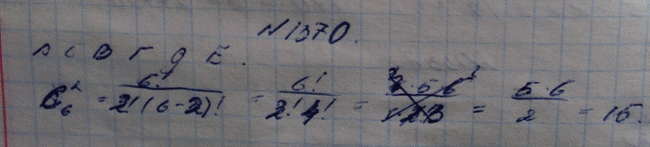 N1370.
А С В Г Д Е.
C₆² = 6! / 2!(6-2)! = 6! / 2!4! = = 5·6 / 2 = 15.